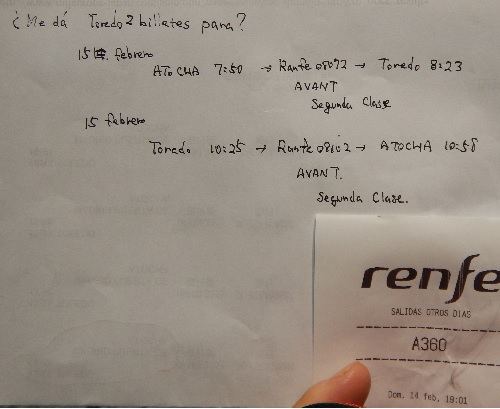 ¿Me dá Toredo 2 billetes para?
15 febrero
ATOCHA 7:50 → Ranfe 08072 → Toredo 8:23
AVANT
Segunda Clase
15 febrero
Toredo 10:25 → Ranfe 08102 → ATOCHA 10:58
AVANT.
Segunda Clase.
renfe
SALIDAS OTROS DIAS
A360
Dom. 14 feb, 19:01